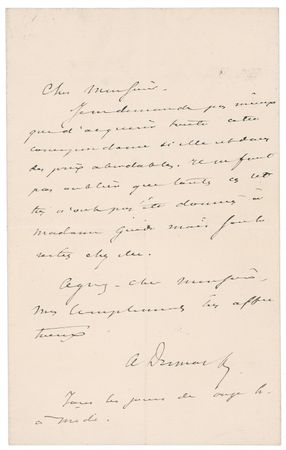 Cher Monsieur.
Je ne demande pas mieux
que d'acquérir toute cette
correspondance si elle est dans
des prix abordables. Il ne faut
pas oublier que toutes ces let
tres n'ont pas été données à
madame mais sont
restées chez elle.
Agréez, cher Monsieur,
mes compliments les plus affec
tueux
A Dumas
Tous les jours de onze h.
à midi.